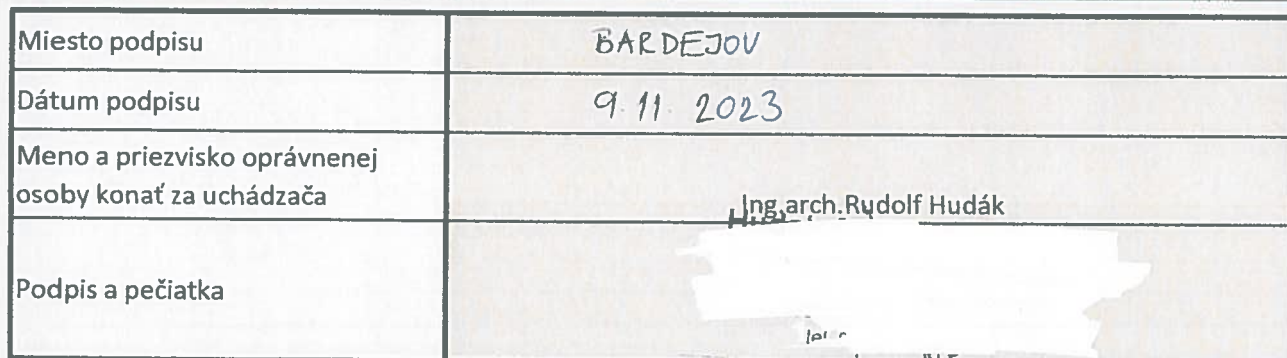 Miesto podpisu
BARDEJOV
Dátum podpisu
9. 11. 2023
Meno a priezvisko oprávnenej
osoby konať za uchádzača
Ing.arch.Rudolf Hudák
Podpis a pečiatka